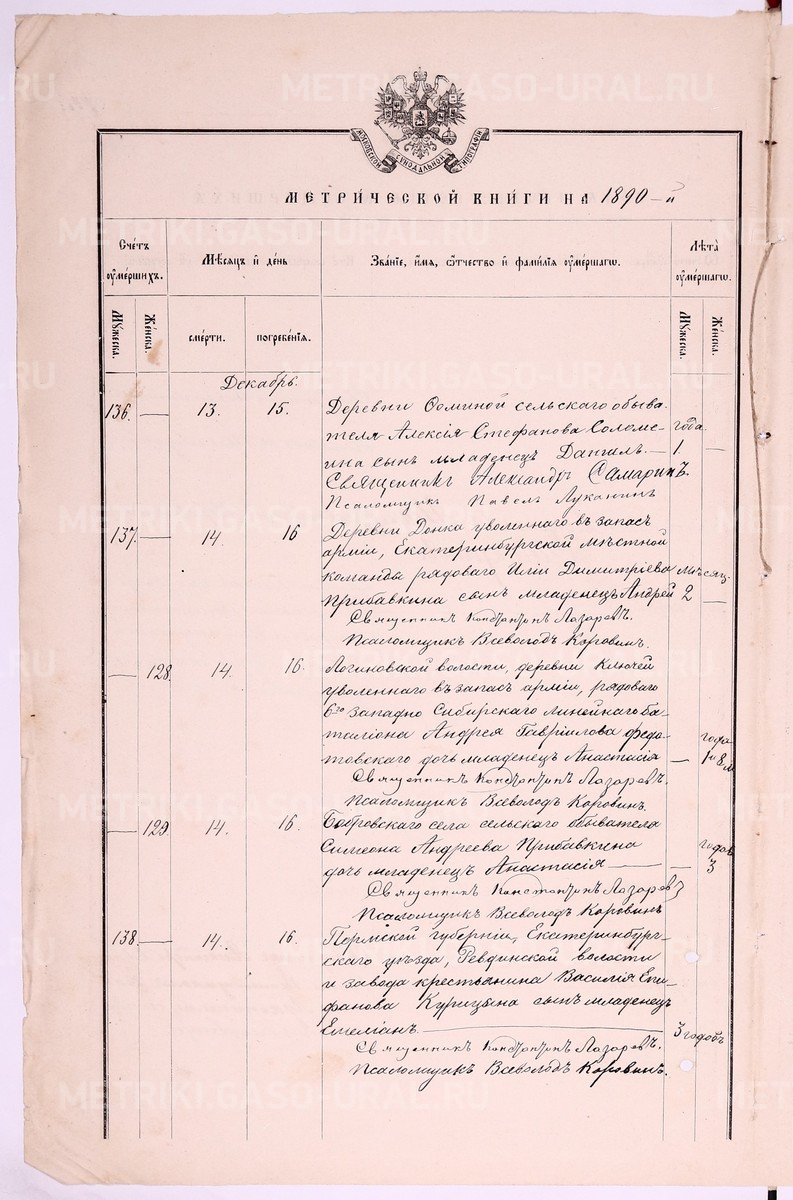 METRIKI.GASO-URAL.RU
МОСКОВСКОЙ СѴНОДАЛЬНОЙ ТИПОГРАФІИ
МЕТРИЧЕСКОЙ КНИГИ НА 1890-й
Счетъ оумершихъ.
Мѣсяцъ и день
Званїе, имя, ѿтчество и фамилїя оумершагѡ.
Лѣта оумершагѡ.
Мужеска.
Женска.
смерти.
погребенїя.
Мужеска.
Женска.
Декабрь.
136. — 13. 15. Деревни Фоминой сельскаго обыва-
теля Алексія Стефанова Соломе- года
ина сынъ младенецъ Даніилъ. — 1 —
Священникъ Александръ Самаринъ.
Псаломщикъ Павелъ Луканинъ
137. — 14. 16 Деревни Донка уволеннаго въ запасъ
арміи, Екатеринбургской мѣстной
команды рядоваго Иліи Димитріева мѣсяц.
Прибавкина сынъ младенецъ Андрей 2 —
Священникъ Константинъ Лазаревъ.
Псаломщикъ Всеволодъ Коровинъ.
— 128. 14. 16. Логиновской волости, деревни Ключей
уволеннаго въ запасъ арміи, рядоваго
6го Западно Сибирскаго линейнаго ба-
таліона Андрея Гавріилова Федо- года
товскаго дочь младенецъ Анастасія — 1 и 8 м
Священникъ Константинъ Лазаревъ.
Псаломщикъ Всеволодъ Коровинъ.
— 129 14. 16. Бобровскаго села сельскаго обывателя
Симеона Андреева Прибавкина годов
дочь младенецъ Анастасія — — 3
Священникъ Константинъ Лазаревъ
Псаломщикъ Всеволодъ Коровинъ
138. — 14. 16. Пермской губерніи, Екатеринбург-
скаго уѣзда, Ревдинской волости
и завода крестьянина Василія Епи-
фанова Курицына сынъ младенецъ
Емеліанъ. — 3 годовъ
Священникъ Константинъ Лазаревъ.
Псаломщикъ Всеволодъ Коровинъ.